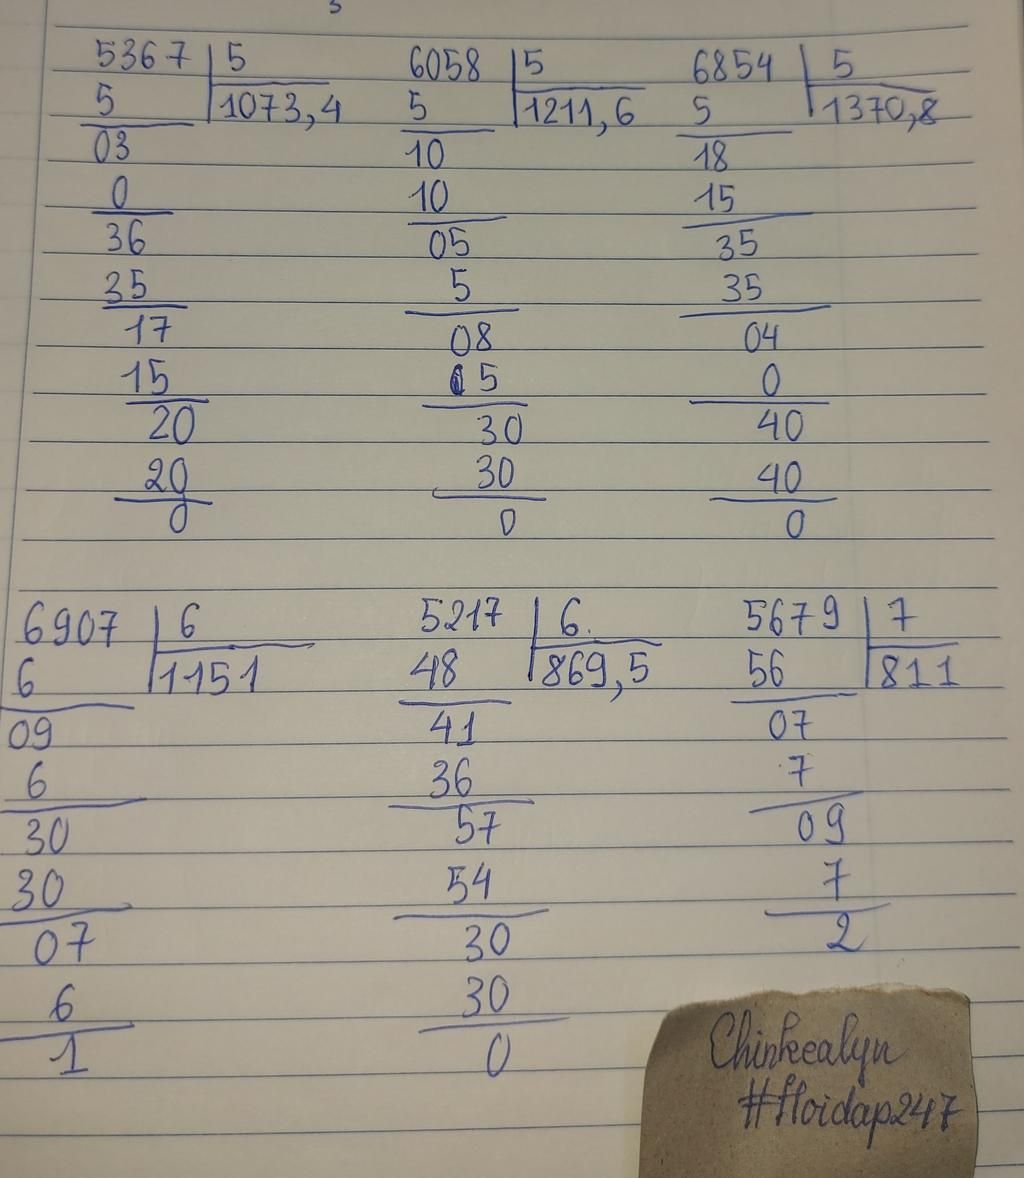 5367 5 6058 5 6854 5
5 1073,4 5 1211,6 5 1370,8
03 10 18
0 10 15
36 05 35
35 5 35
17 08 04
15 5 0
20 30 40
20 30 40
0 0 0
6907 6 5217 6. 5679 7
6 1151 48 869,5 56 811
09 41 07
6 36 7
30 57 09
30 54 7
07 30 2
6 30
1 0
Chinkealyn
#Hoidap247